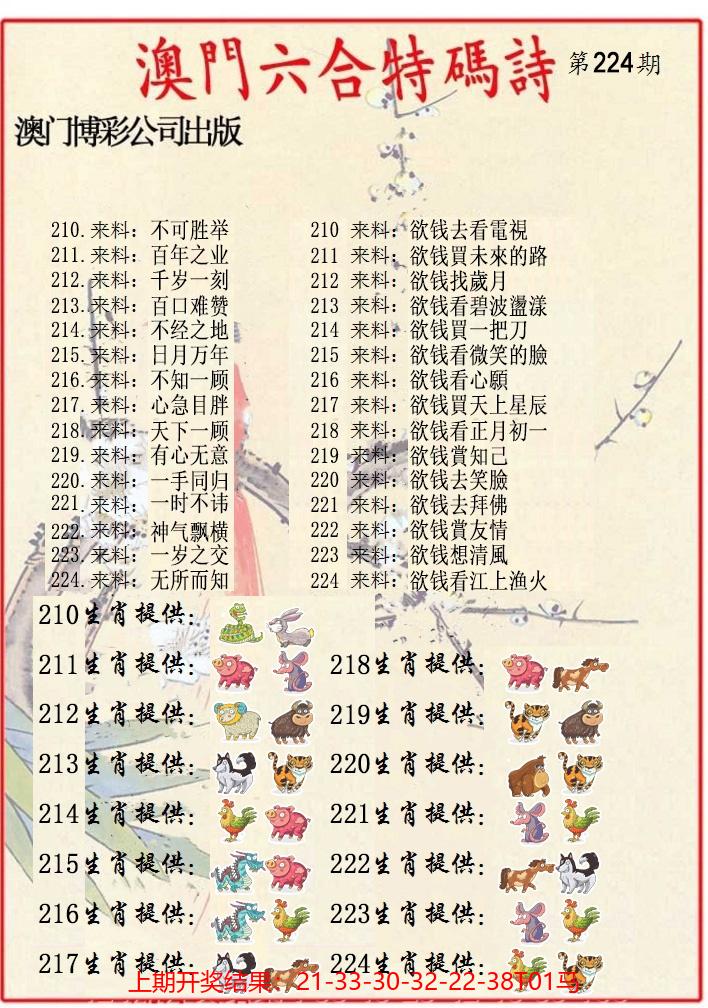 澳門六合特碼詩 第224期
澳门博彩公司出版
210.来料：不可胜举 210 来料：欲钱去看電視
211.来料：百年之业 211 来料：欲钱買未來的路
212.来料：千岁一刻 212 来料：欲钱找歲月
213.来料：百口难赞 213 来料：欲钱看碧波盪漾
214.来料：不经之地 214 来料：欲钱買一把刀
215.来料：日月万年 215 来料：欲钱看微笑的臉
216.来料：不知一顾 216 来料：欲钱看心願
217.来料：心急目胖 217 来料：欲钱買天上星辰
218.来料：天下一顾 218 来料：欲钱看正月初一
219.来料：有心无意 219 来料：欲钱賞知己
220.来料：一手同归 220 来料：欲钱去笑臉
221.来料：一时不讳 221 来料：欲钱去拜佛
222.来料：神气飘横 222 来料：欲钱賞友情
223.来料：一岁之交 223 来料：欲钱想清風
224.来料：无所而知 224 来料：欲钱看江上渔火
210生肖提供：
211生肖提供： 218生肖提供：
212生肖提供： 219生肖提供：
213生肖提供： 220生肖提供：
214生肖提供： 221生肖提供：
215生肖提供： 222生肖提供：
216生肖提供： 223生肖提供：
217生肖提供： 224生肖提供：
上期开奖结果：21-33-30-32-22-38T01马